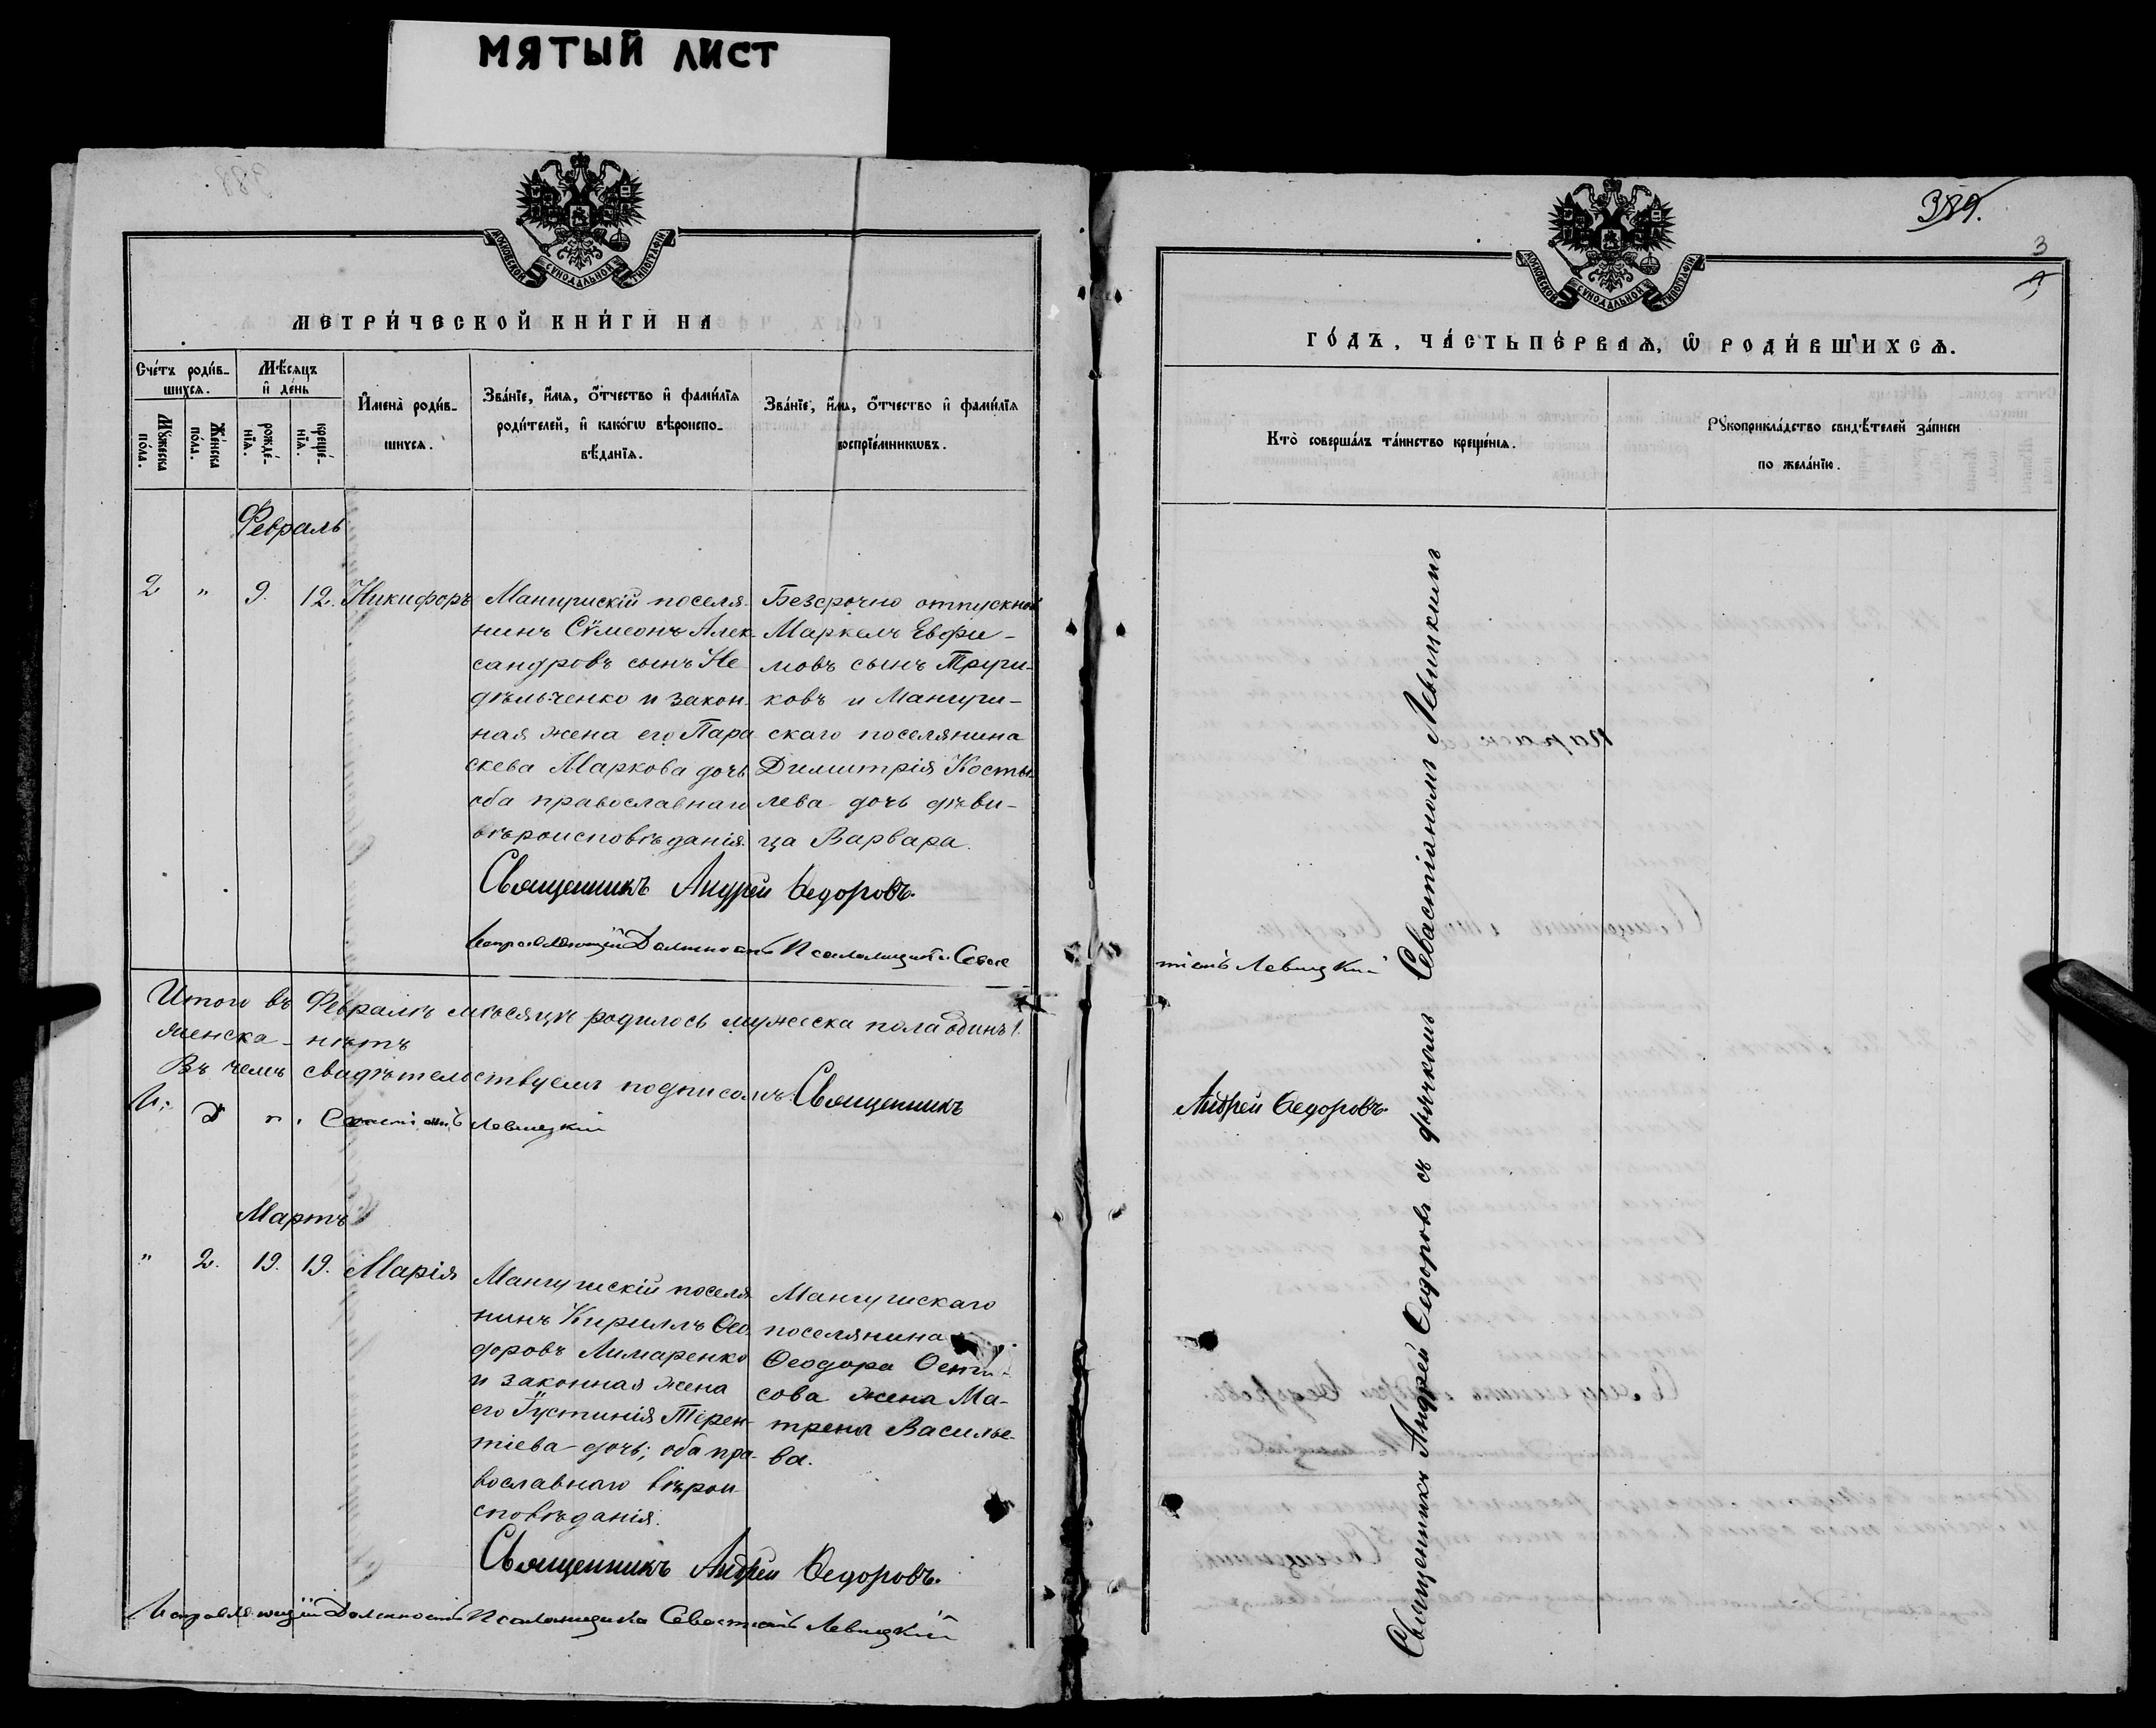 МЯТЫЙ ЛИСТ
МОСКОВСКОЙ СѴНОДАЛЬНОЙ ТИПОГРАФІИ
МЕТРИ́ЧЕСКОЙ КНИ́ГИ НА
Сче́тъ роди́в-
шихся.
Мѣ́сяцъ
и҆ де́нь
Мꙋ́жеска
по́ла.
Же́нска
по́ла.
рожде́-
нїѧ.
креще́-
нїѧ.
И҆мена̀ роди́в-
шихсѧ.
Зва́нїе, и҆́мѧ, ѻ҆́тчество и҆ фами́лїѧ
роди́телей, и҆ како́гѡ вѣроиспо-
вѣ́данїѧ.
Зва́нїе, и҆́мѧ, ѻ҆́тчество и҆ фами́лїѧ
воспрїе́мникѡвъ.
Февраль
2 " 9. 12. Никифоръ
Мангушскій поселя-
нинъ Сѵмеонъ Алек-
сандровъ сынъ Не-
дѣльченко и закон-
ная жена его Пара
скева Маркова дочь
оба православнаго
вѣроисповѣданія.
Безсрочно отпускной
Маркелъ Евфи-
мовъ сынъ
ковъ и Мангуш-
скаго поселянина
Димитрія Косты-
лева дочь дѣви-
ца Варвара.
Священникъ Андрей Ѳедоровъ.
Исправляющій Должность Псаломщика Севас
тіанъ Левицкій
Итого въ Февралѣ мѣсяцѣ родилось мужеска пола одинъ 1.
женска - нѣтъ
Въ чемъ свидѣтельствуемъ подписомъ: Священникъ
Андрей Ѳедоровъ.
И. Д п. Севастіанъ Левицкій
Мартъ
" 2. 19. 19. Марія
Мангушскій поселя
нинъ Кириллъ Ѳео-
доровъ Лимаренко
и законная жена
его Іустинія Терен-
тіева дочь; оба пра-
вославнаго вѣрои
сповѣданія.
Мангушскаго
поселянина
Ѳеодора
сова жена Ма-
трена Василье-
ва.
Священникъ Андрей Ѳедоровъ.
Исправляющій Должность Псаломщика Севастіанъ Левицкій
389.
3
МОСКОВСКОЙ СѴНОДАЛЬНОЙ ТИПОГРАФІИ
ГО́ДЪ, ЧА́СТЬ ПЕ́РВАѦ, Ѽ РОДИ́ВШИХСѦ.
Кто̀ соверша́лъ та́инство креще́нїѧ.
Рꙋкоприкла́дство свидѣ́телей за́писи
по жела́нїю.
Священникъ Андрей Ѳедоровъ съ дьячкомъ Севастіаномъ Левицкимъ